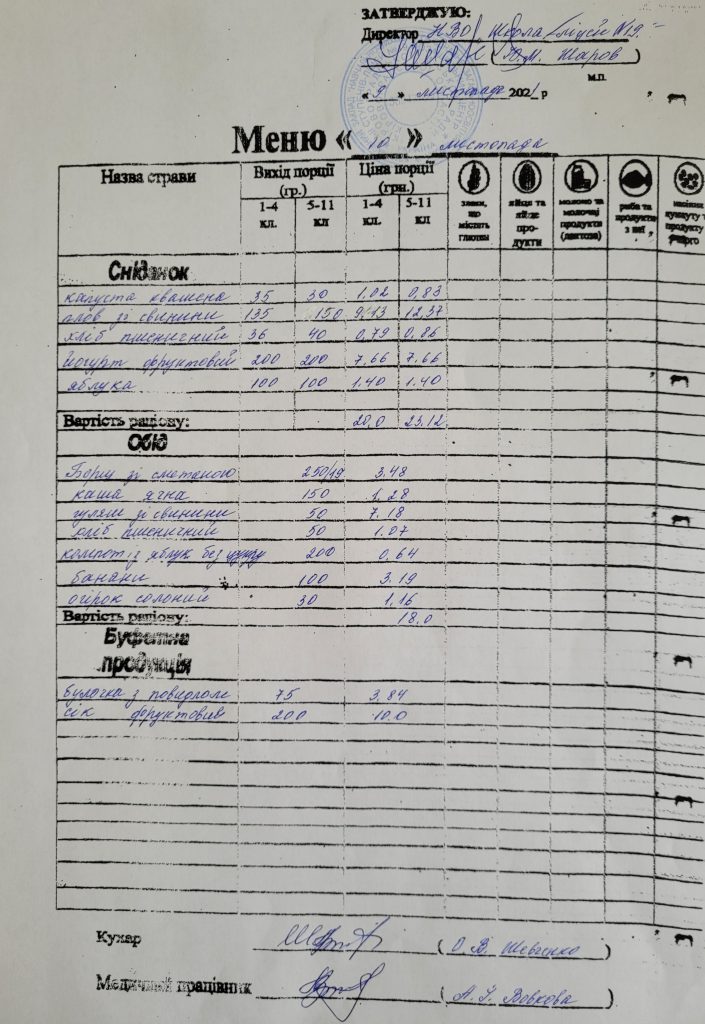 ЗАТВЕРДЖУЮ:
Директор НВО Школа/ліцей №19
(Ю.М. Жаров)
м.п.
« 9 » листопада 2021 р
Меню « 10 » листопада
Назва страви Вихід порції (гр.) Ціна порції (грн.)
1-4 кл. 5-11 кл 1-4 кл. 5-11 кл
злаки, що містять глютен
яйця та яйце продукти
молоко та молочні продукти (лактоза)
риба та продукти з неї
насіння кунжуту т продукту
Сніданок
капуста квашена 35 30 1,02 0,83
плов зі свинини 135 150 9,13 12,37
хліб пшеничний 36 40 0,79 0,86
йогурт фруктовий 200 200 7,66 7,66
яблука 100 100 1.40 1.40
Вартість раціону: 20,0 23.12
Обід
Борщ зі сметаною 250/19 3.48
каша ячна 150 1,28
гуляш зі свинини 50 7.18
хліб пшеничний 50 1.07
компот із яблук без цукру 200 0,64
банани 100 3.19
огірок солоний 30 1,16
Вартість раціону: 18.0
Буфетна продукція
булочка з повидлом 75 3,84
сік фруктовий 200 10.0
Кухар (О. В. Шевченко)
Медичний працівник (А. І. Вовкова)